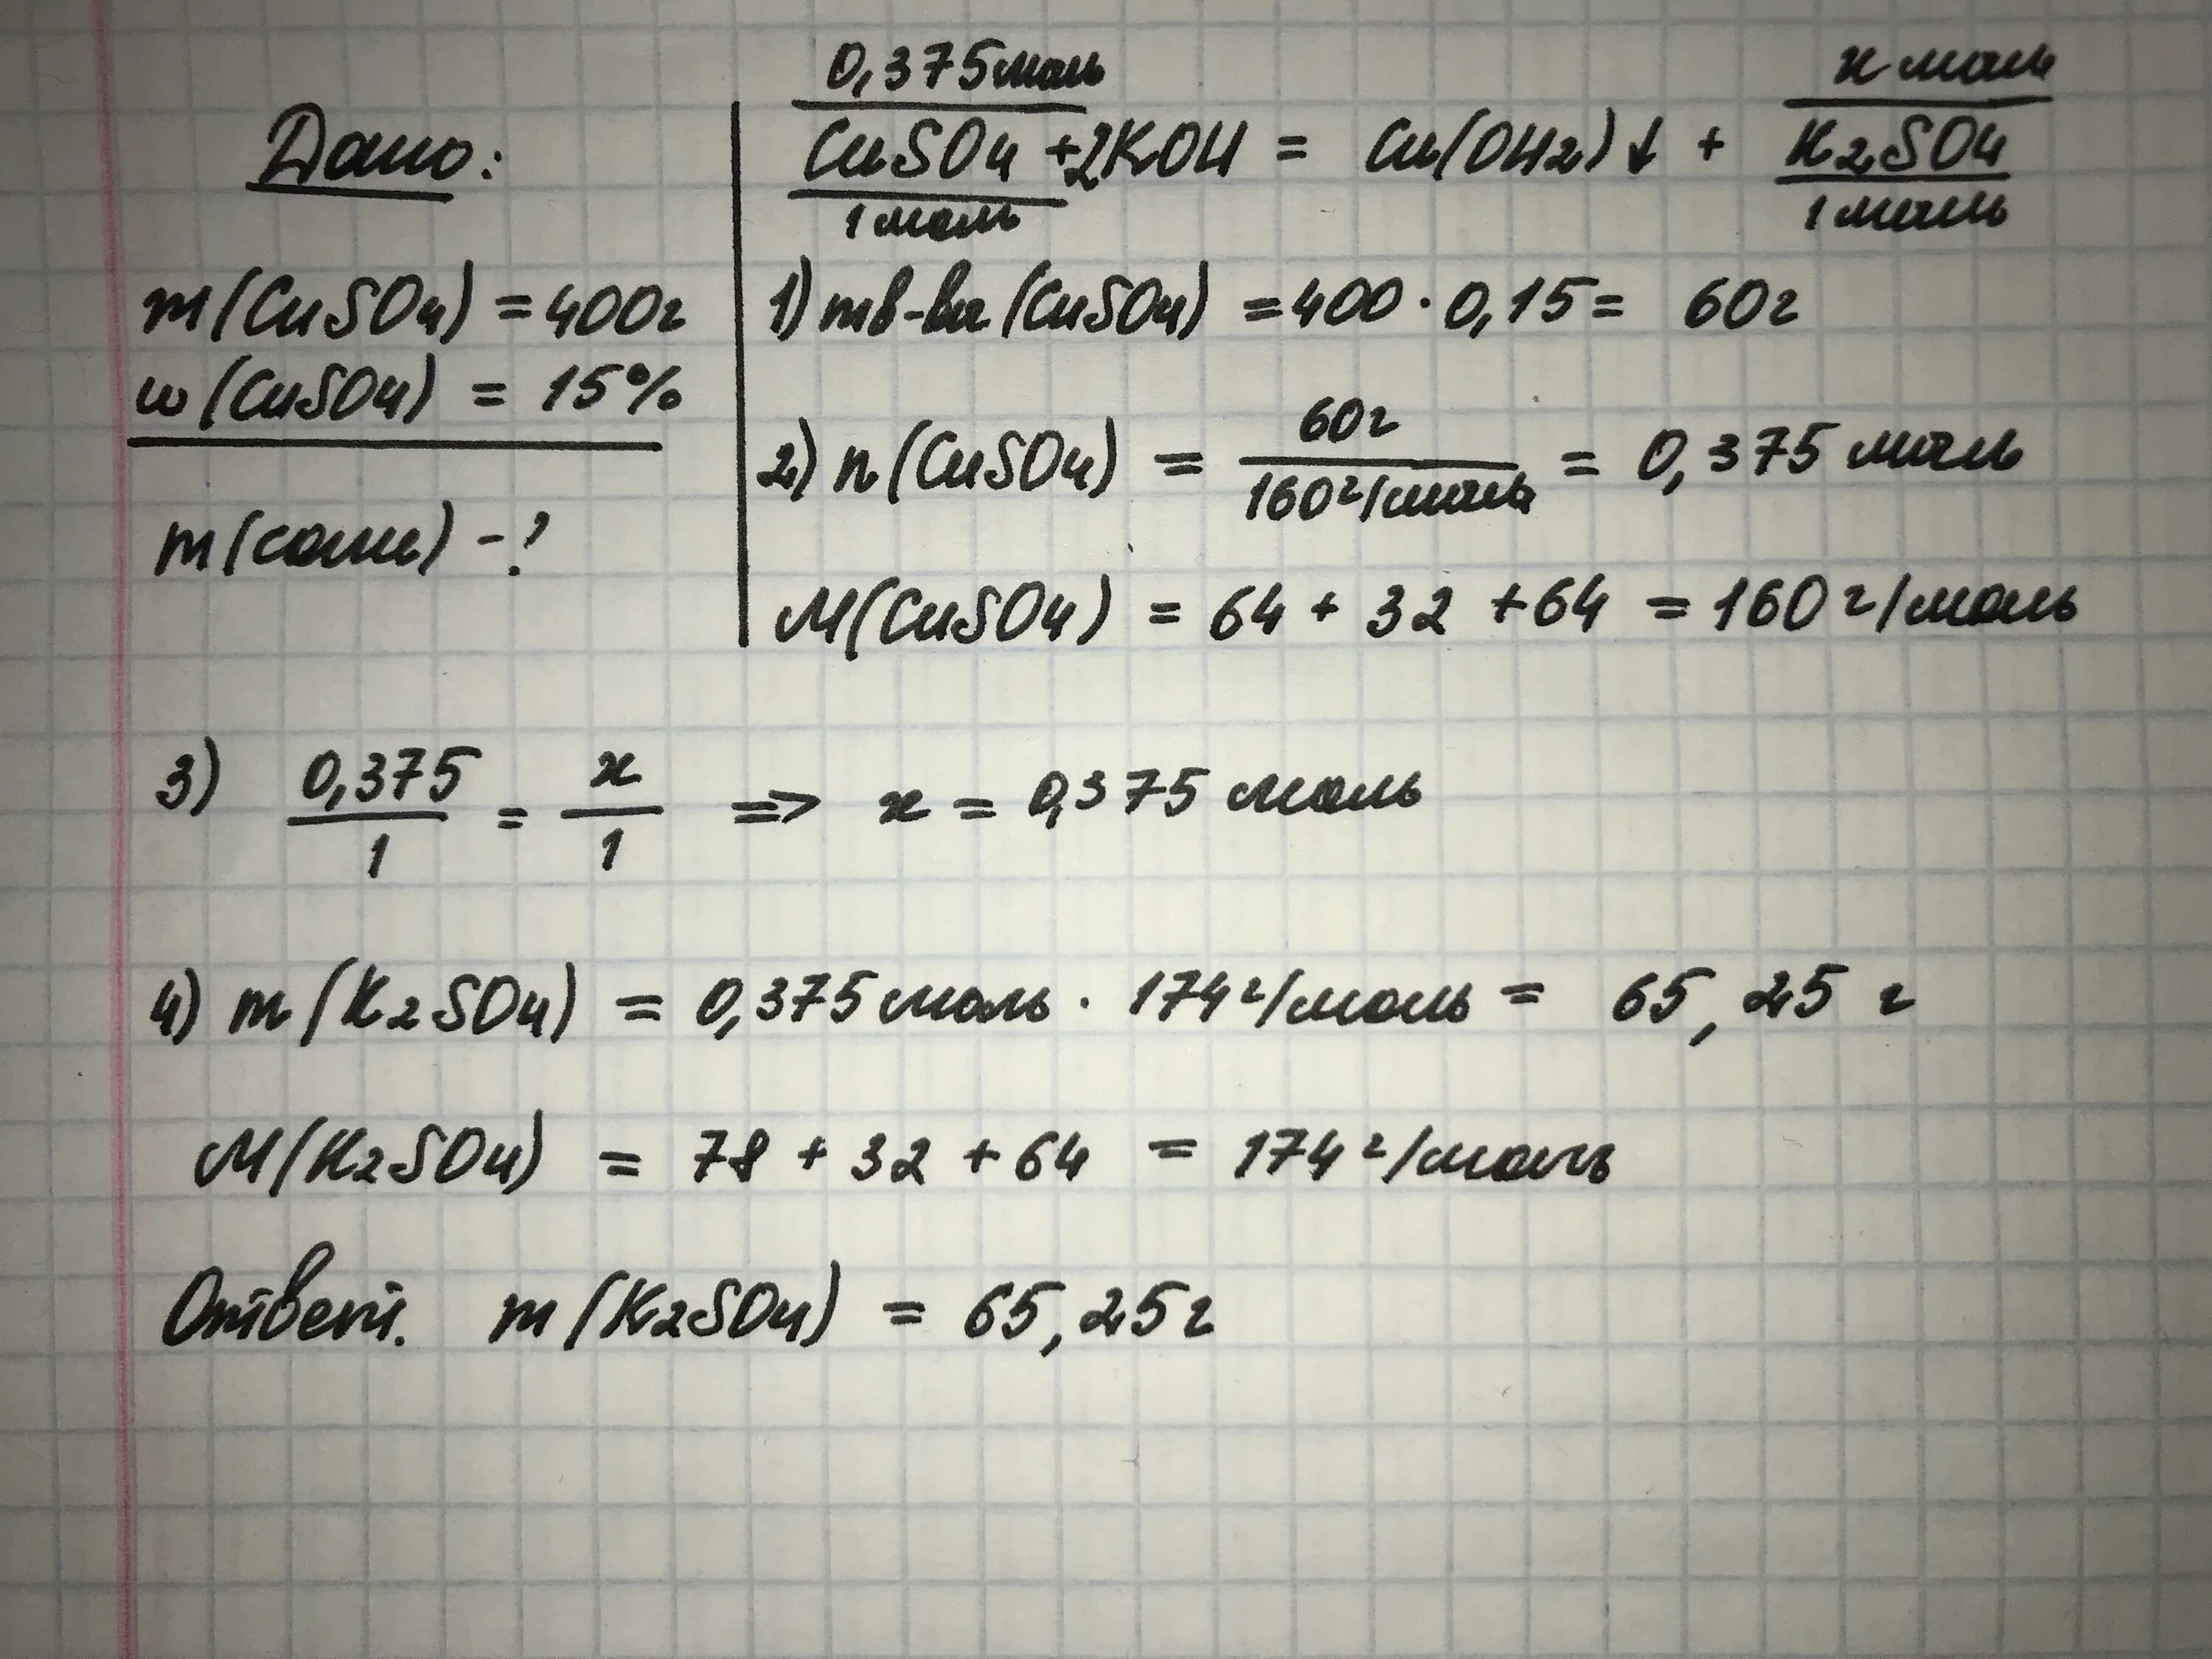 Дано:
m(CuSO4) = 400г
w(CuSO4) = 15%
m(соли) - ?
0,375моль
x моль
CuSO4 + 2KOH = Cu(OH2)↓ + K2SO4
1 моль
1 моль
1) m в-ва (CuSO4) = 400 · 0,15 = 60г
60г
2) n(CuSO4) = ——— = 0,375 моль
160г/моль
M(CuSO4) = 64 + 32 + 64 = 160 г/моль
3) 0,375/1 = x/1 => x = 0,375 моль
4) m(K2SO4) = 0,375 моль · 174г/моль = 65,25 г
M(K2SO4) = 78 + 32 + 64 = 174 г/моль
Ответ. m(K2SO4) = 65,25г